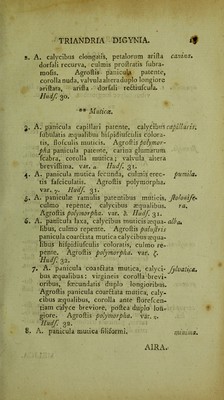 TRIANDRIA DIGYNIA.
2. A. calycibus elongatis, petalorum arista canina.
dorsali recurva, culmis prostratis subra-
mosis. Agrostis panicula patente,
corolla nuda, valvula altera duplo longiore
aristata, arista dorsali rectiuscula.
Hudf. 30.
** Muticæ.
3. A. panicula capillari patente, calycibus capillaris.
subulatis æqualibus hispidiusculis colora-
tis, flosculis muticis. Agrostis polymor-
pha panicula patente, carina glumarum
scabra, corolla mutica; valvula altera
brevissima. var. α Hudf. 31.
4. A. panicula mutica secunda, culmis erec-
tis fascicularis. Agrostis polymorpha.
var. Hudf. 31.
5. A. paniculæ ramulis patentibus muticis, stolonife-
culmo repente, calycibus æqualibus. ra.
Agrostis polymorpha. var. δ. Hudf. 31.
6. A. panicula laxa, calycibus muticis æqua- alba.
libus, culmo repente. Agrostis palustris
panicula coarctata mutica calycibus æqua-
libus hispidiusculis coloratis, culmo re-
pente. Agrostis polymorpha. var. ζ.
Hudf. 32.
7. A. panicula coarctata mutica, calyci- sylvatica.
bus æqualibus: virgineis corolla brevi-
oribus, fœcundatis duplo longioribus.
Agrostis panicula coarctata mutica, caly-
cibus æqualibus, corolla ante florescen-
tiam calyce breviore, postea duplo lon-
giore. Agrostis polymorpha. var. η.
Hudf. 32.
8. A. panicula mutica filiformi. minima.
AIRA.